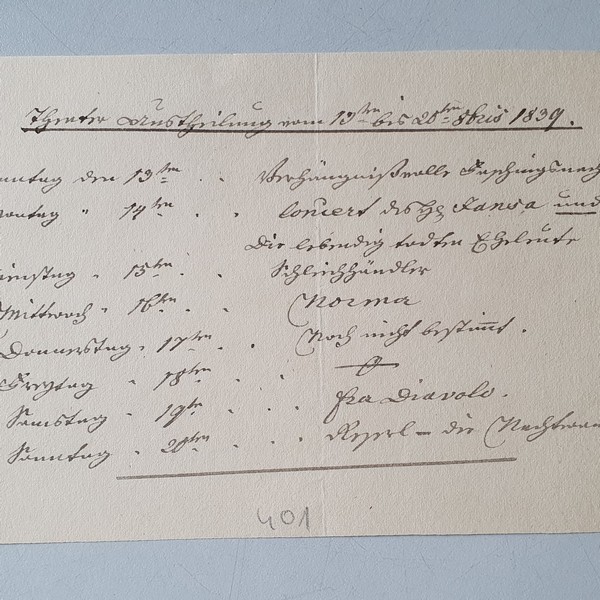 Theater Austheilung vom 13ten bis 20ten 8bris 1839.
nntag den 13ten . . Verhängnißvolle Faschingsnach
ontag " 14ten . . Concert des H. Jansa und
Die lebendig todten Eheleute
ienstag " 15ten . Schleichhändler
Mittwoch " 16ten . . Norma
Donnerstag " 17ten . . Noch nicht bestimmt .
Freytag 18ten . .
Samstag " 19ten . . . Fra Diavolo .
Sonntag " 20ten . . . – die Nachtwan
401